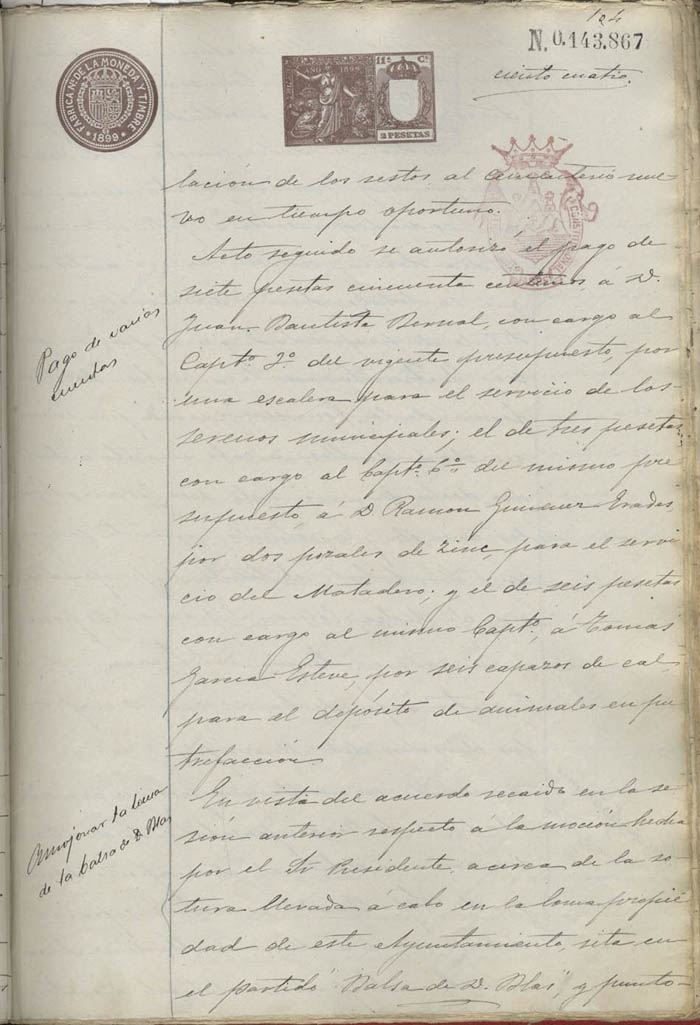 104
N. 0.143.867
ciento cuatro.
FÁBRICA NAL. DE LA MONEDA Y TIMBRE
1899
AÑO 1899
11ª Cª
2 PESETAS
lación de los restos al Cementerio nue-
vo en tiempo oportuno.
Acto seguido se autorizó el pago de
siete pesetas cincuenta centimos, á D.
Juan Bautista Bernal, con cargo al
Captº. 2º. del vigente presupuesto, por
una escalera para el servicio de los
serenos municipales; el de tres pesetas
con cargo al Captº. 6º. del mismo pre
supuesto, á D. Ramon Gimenez Erades
por dos pozales de zinc, para el servi-
cio del Matadero; y el de seis pesetas
con cargo al mismo Captº., á Tomas
Garcia Esteve, por seis capazos de cal,
para el depósito de animales en pu
trefacción
En vista del acuerdo recaido en la se-
sión anterior respecto á la moción hecha
por el Sr Presidente, acerca de la ro-
tura llevada á cabo en la loma propie
dad de este Ayuntamiento, sita en
el partido "Balsa de D. Blas", y punto-
Pago de varias
cuentas
Amojonar la loma
de la balsa de D. Blas